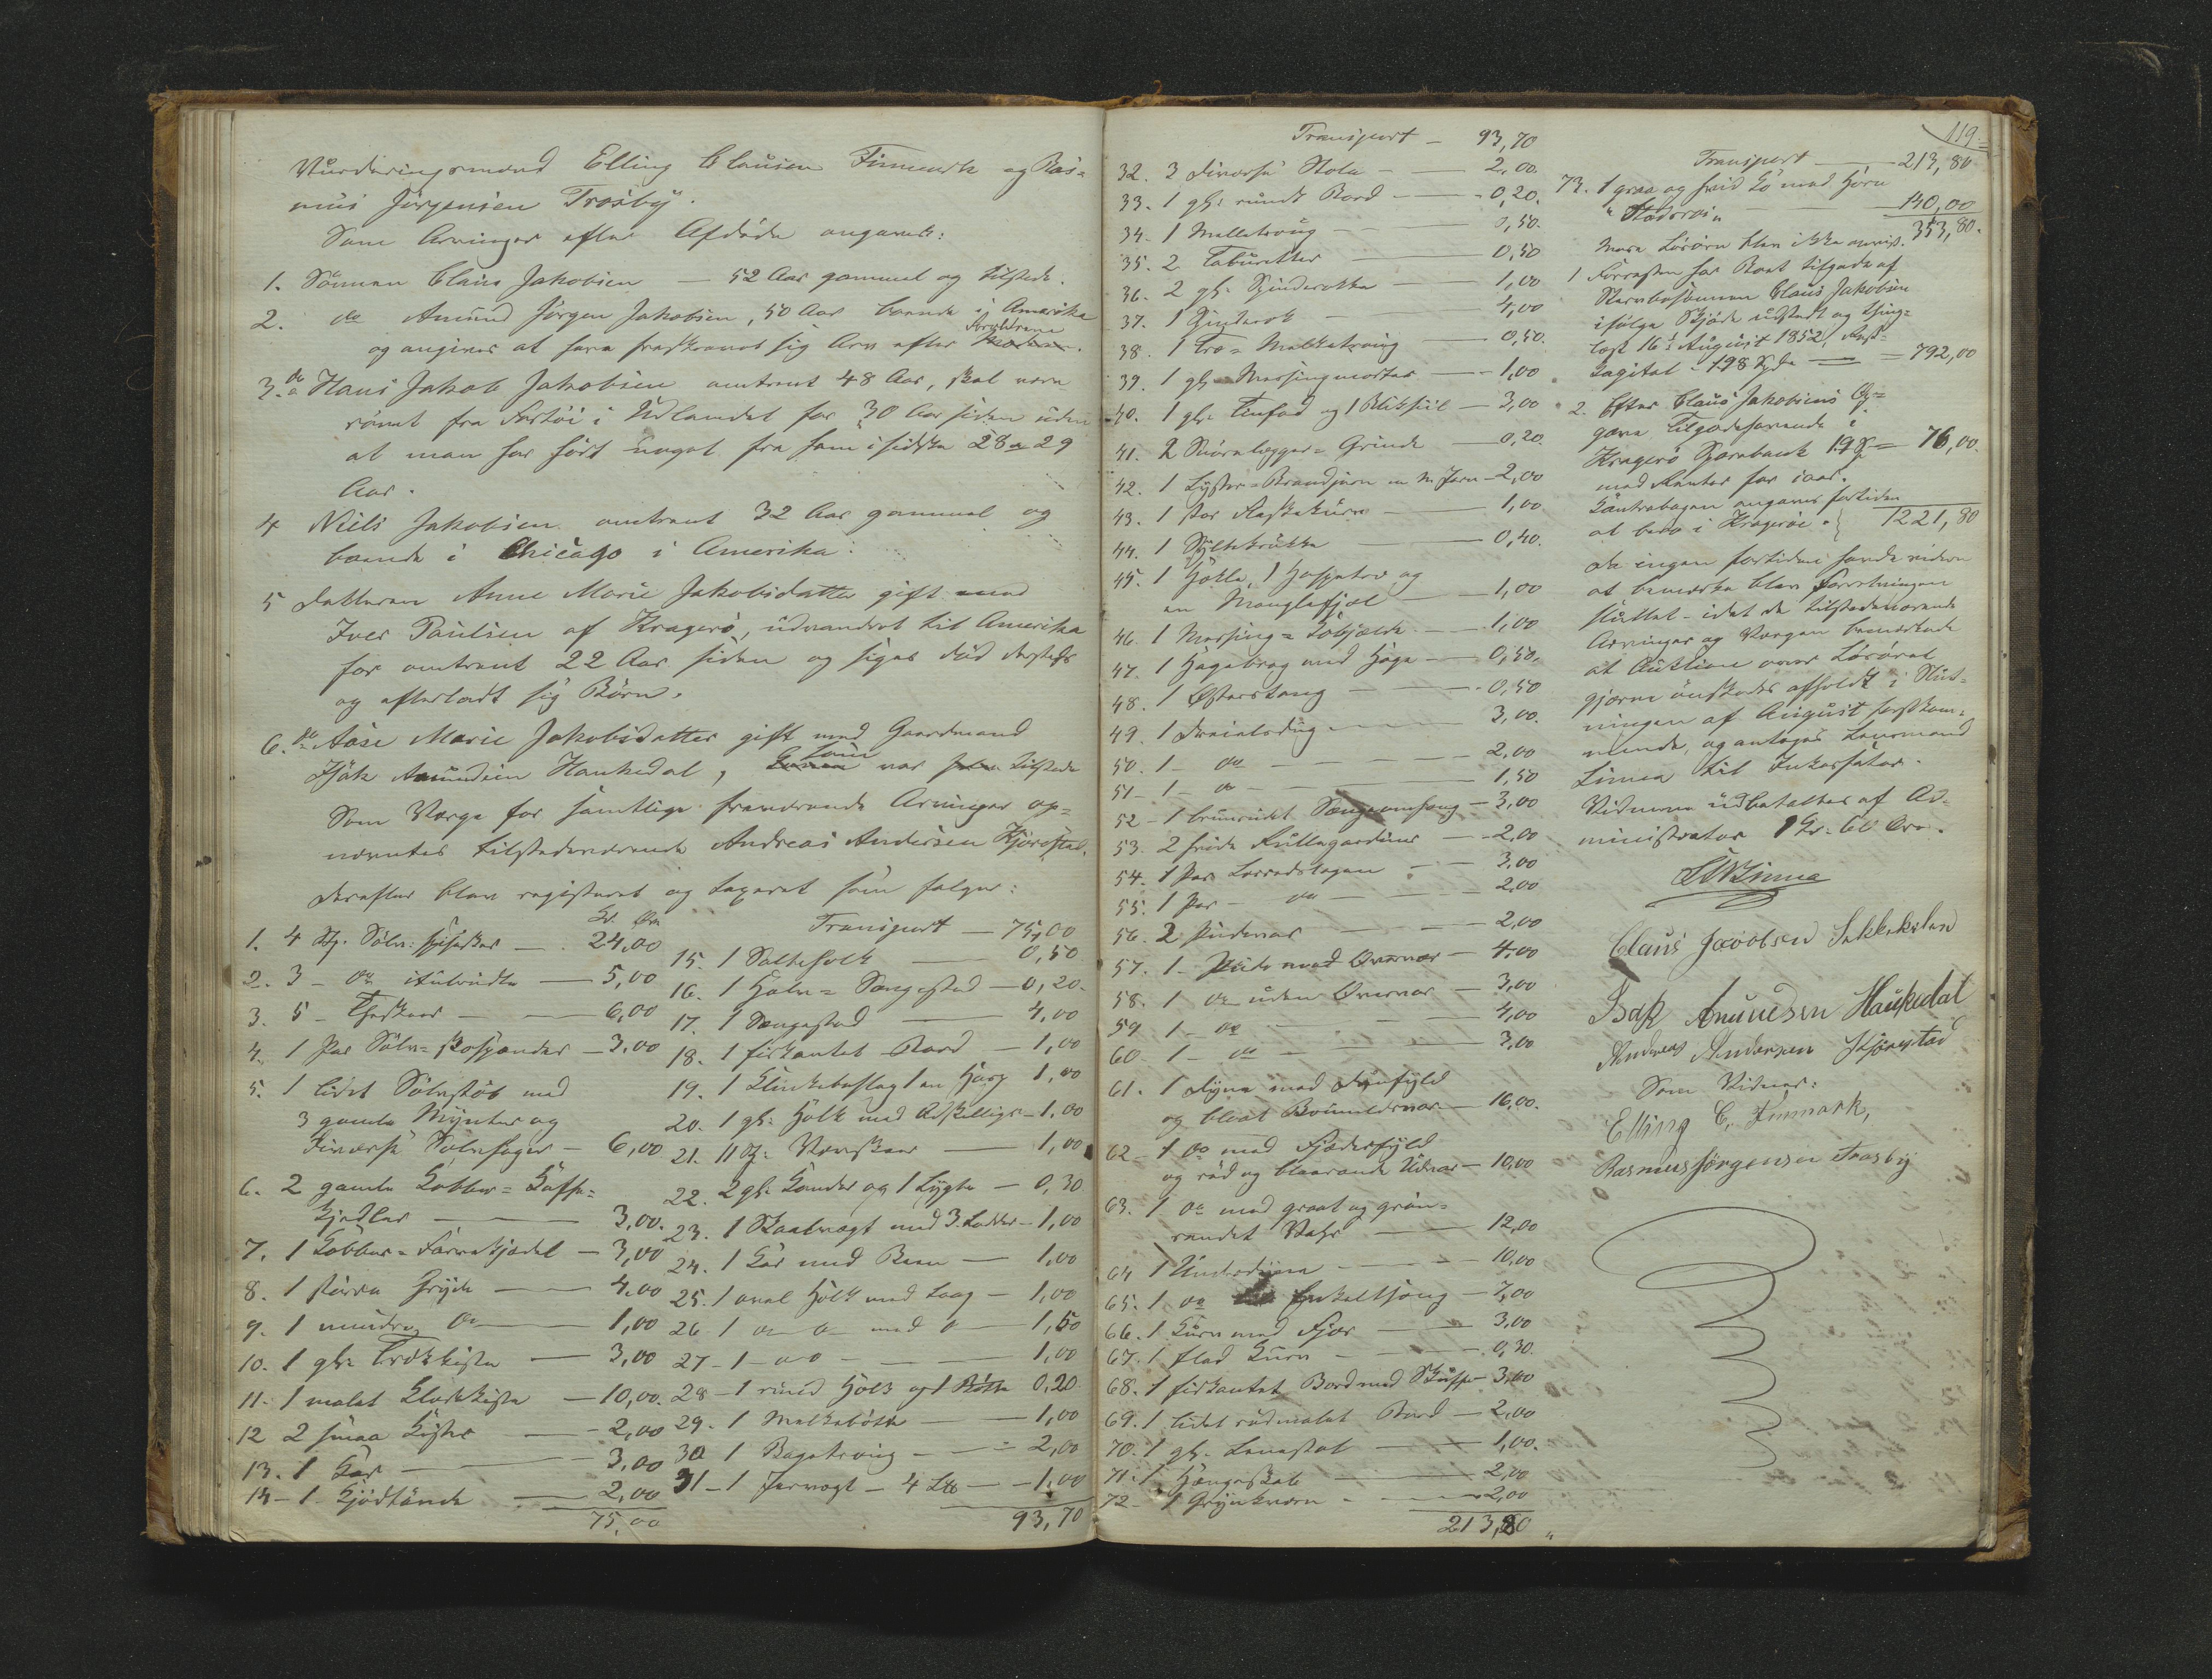 Vurderingsmænd Elling Clausen Finmark og Ras=
mus Jørgensen Trosby.
Som Arvinger efter Afdøde angaves:
1. Sønnen Claus Jakobsen — 52 Aar gammel og tilstede.
2. do Amund Jørgen Jakobsen, 50 Aar boende i Amerika
og angives at have fraskrevet sig Arv efter Forældrene.
3. do Hans Jakob Jakobsen omtrent 48 Aar, skal være
rømt fra Fartøi i Udlandet for 30 Aar siden uden
at man har hørt noget fra ham i sidste 28 a 29
Aar.
4 Niels Jakobsen omtrent 32 Aar gammel og
boende i Chicago i Amerika.
5 Datteren Anne Marie Jakobsdatter gift med
Iver Paulsen af Kragerø, udvandret til Amerika
for omtrent 22 Aar siden og siges død dersteds
og efterladt sig Børn.
6. do Aase Marie Jakobsdatter gift med Gaardmand
Isak Amundsen Haukedal, var tilstede
Som Værge for samtlige fraværende Arvinger op=
nævntes tilstedeværende Andreas Andersen Kjørestad.
Derefter blev registreret og taxeret som følger:
Kr. Øre
1. 4 St. Sølv: spiseskeer — 24,00
2. 3 – do itubrudte — 5,00
3. 5 – Theskeer — 6,00
4. 1 Par Sølv=skospænder — 3,00
5. 1 lidet Sølvstøb med
3 gamle Mynter og
diverse Sølvsager — 6,00
6. 2 gamle Kobber=Kaffe=
kjedler — 3,00.
7. 1 Kobber=Farvekjedel — 3,00
8. 1 større Gryde — 4,00
9. 1 mindre do — 1,00
10. 1 gl: Trækiste — 3,00
11. 1 malet Klædekiste — 10,00.
12 2 smaa Kister — 2,00
13. 1 Kar — 3,00
14 – 1 Kjødtønde — 2,00
75,00
Transport — 75,00
15. 1 Salteholk — 0,50
16. 1 Halv=Sengested — 0,20.
17. 1 Sengested — 4,00
18. 1 firkantet Bord — 1,00
19. 1,00
20. 1 gl: Holk med Adskilligt — 1,00
21. — 1,00
22. 2 gl: Kander og 1 Lygte — 0,30
23. 1 Skaalvægt med 3. Lodder — 1,00
24. 1 Kar med Been — 1,00
25. 1 oval Holk med Laag — 1,00
26 1 do do med do — 1,50
27 – 1 – do — 1,00
28 – 1 rund Holk og 1 Bøtte 0,20
29. 1 Melkebøtte — 1,00
30 1 Bagetroug — 2,00
31 – 1 Jernvægt – — 1,00
93,70
Transport — 93,70
32. 3 diverse Stole — 2,00.
33. 1 gl: rundt Bord — 0,20.
34. 1 Melketroug — 0,50.
35. 2 Taburetter — 0,50
36. 2 gl: Spinderokke — 1,00
37. 1 — 4,00
38. 1 Træ=Melketroug — 0,50.
39. 1 gl: Messingmorter — 1,00
40. 1 gl: Tinfad og 1 — 3,00
41. 2 Grinde — 0,20.
42. 1 Lyster= m Jern — 2,00
43. 1 stor Flaskekurv — 1,00
44. 1 Syltekrukke — 0,40.
45. 1 Hekle, 1 Haspetræ og
en Manglefjæl — 1,00
46. 1 Messing= — 1,00
47. 1 med Hage — 0,50.
48. 1 Østerstang — 0,50
49. 1 Dreielsdug — 3,00.
50. 1 – do — 2,00
51 – 1 – do — 1,50
52 – 1 Sengeomhæng — 3,00
53. 2 hvide Rullegardiner — 2,00
54. 1 Par Lærredslagen — 3,00
55. 1 Par – do — 2,00
56. 2 Pudevar — 2,00
57. 1 – Pude med Overvar — 4,00
58. 1 do uden Overvar — 3,00
59 1 – do — 4,00
60. 1 – do — 3,00
61. 1 Dyne med Dunfyld
og blaat Bomuldsvar — 16,00.
62 – 1 do med Fjæderfyld
og rød og blaarandet — 10,00
63. 1 do med graat og grøn=
randet Vahr — 12,00
64 1 Underdyne — 10,00
65. 1 do Enkeltseng — 7,00
66. 1 Kurv med Fjær — 3,00
67. 1 flad Kurv — 0,30.
68. 1 firkantet Bord med Skuffe — 3,00
69. 1 lidet rødmalet Bord — 2,00
70. 1 gl. Lænestol — 1,00.
71. 1 Hængeskab — 2,00
72 – 1 Grynkværn — 2,00
213,80
119.
Transport — 213,80
73. 1 graa og hvid Ko med Horn
— 140,00
353,80.
Mere Løsøre blev ikke anvist.
1 Forresten har Boet tilgode af
Stervbosønnen Claus Jakobsen
ifølge Skjøde udstedt og thing=
læst 16de August 1852, Rest=
kapital – 198 Spd. — 792,00
2. Efter Claus Jakobsens Op=
gave tilgodehavende i
Kragerø Sparebank 19 Sp — 76,00.
med Renter for iaar.
Kontrabogen angaves fortiden
at bero i Kragerøe. 1221,80
Da ingen fortiden havde videre
at bemærke blev Forretningen
sluttet – idet de tilstedeværende
Arvinger og Værgen bemærkede
at Auktion over Løsøret
gjerne ønskedes afholdt i Slut=
ningen af August førstkom=
mende, og antoges Lensmand
Linnea til Inkassator.
Vidnerne udbetaltes af Ad=
ministrator 1 Kr. 60 Øre.
Linnea
Claus Jacobsen
Isak Amundsen Haukedal
Andreas Andersen Kjørestad
Som Vidner:
Elling C. Finmark,
Rasmus Jørgensen Trosby